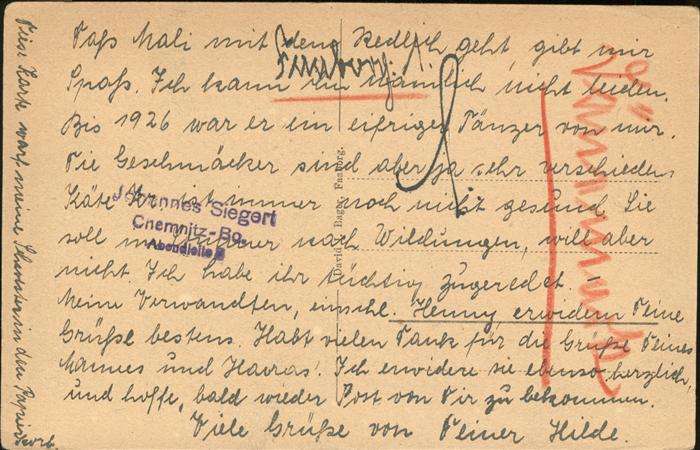 Daß Mali mit dem Redlich geht, gibt mir
Spaß. Ich kann ihn nämlich nicht leiden.
Bis 1926 war er ein eifriger Tänzer von mir.
Die Geschmäcker sind aber ja sehr verschieden.
Käte ist immer noch nicht gesund. Sie
soll immer nach Wildungen, will aber
nicht. Ich habe ihr tüchtig zugeredet. –
Meine Verwandten, einschl. Henny, erwidern Deine
Grüße bestens. Habt vielen Dank für die Grüße Deines
Mannes und Harras'. Ich erwidere sie ebenso herzlich,
und hoffe, bald wieder Post von Dir zu bekommen.
Viele Grüße von Deiner Hilde.
Johannes Siegert
Chemnitz-Bo.
David Bagel
Diese Karte warf meine Schwester in den Papierkorb.